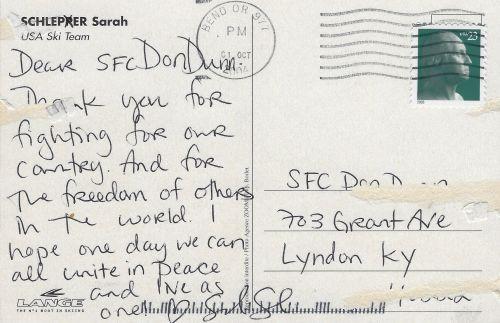 SCHLEPPER Sarah
USA Ski Team
Dear SFC Don Dunn.
Thank you for
fighting for our
country. And for
the freedom of others
in the world. I
hope one day we can
all unite in peace
and live as
one.
LANGE
THE Nº1 BOOT IN SKIING
BEND OR 977
PM
01 OCT
USA 23
SFC Don Dunn
703 Grant Ave
Lyndon Ky